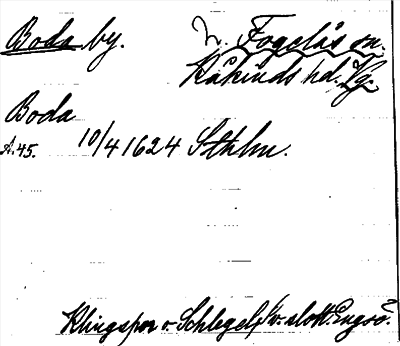 Boda by.
N. Fogelås sn.
Kåkinds hd. Vg.
Boda
A. 45. 10/4 1624 Sthlm.
Klingspor o. Schlegel, v. slott. Engsö.